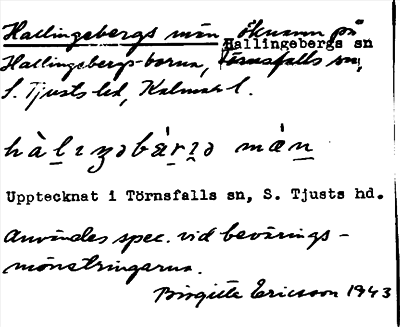 Hallingebergs män öknamn på
Hallingebergs sn
Hallingebergs-borna, Törnsfalls sn,
S. Tjusts hd, Kalmar l.
hàlıŋəbǽrıə mæn
Upptecknat i Törnsfalls sn, S. Tjusts hd.
Användes spec. vid bevärings-
mönstringarna.
Birgitta Ericsson 1943